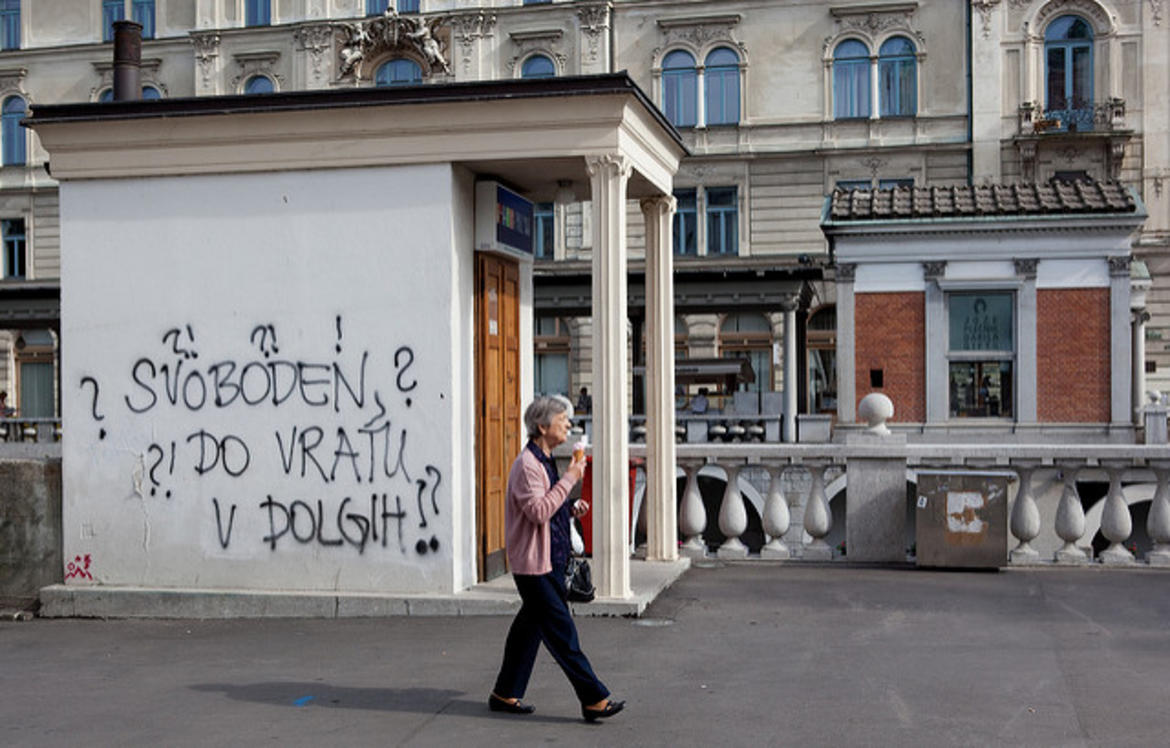 ?! ?! !
? SVOBODEN, ?
?! DO VRATU ?
V DOLGIH !?